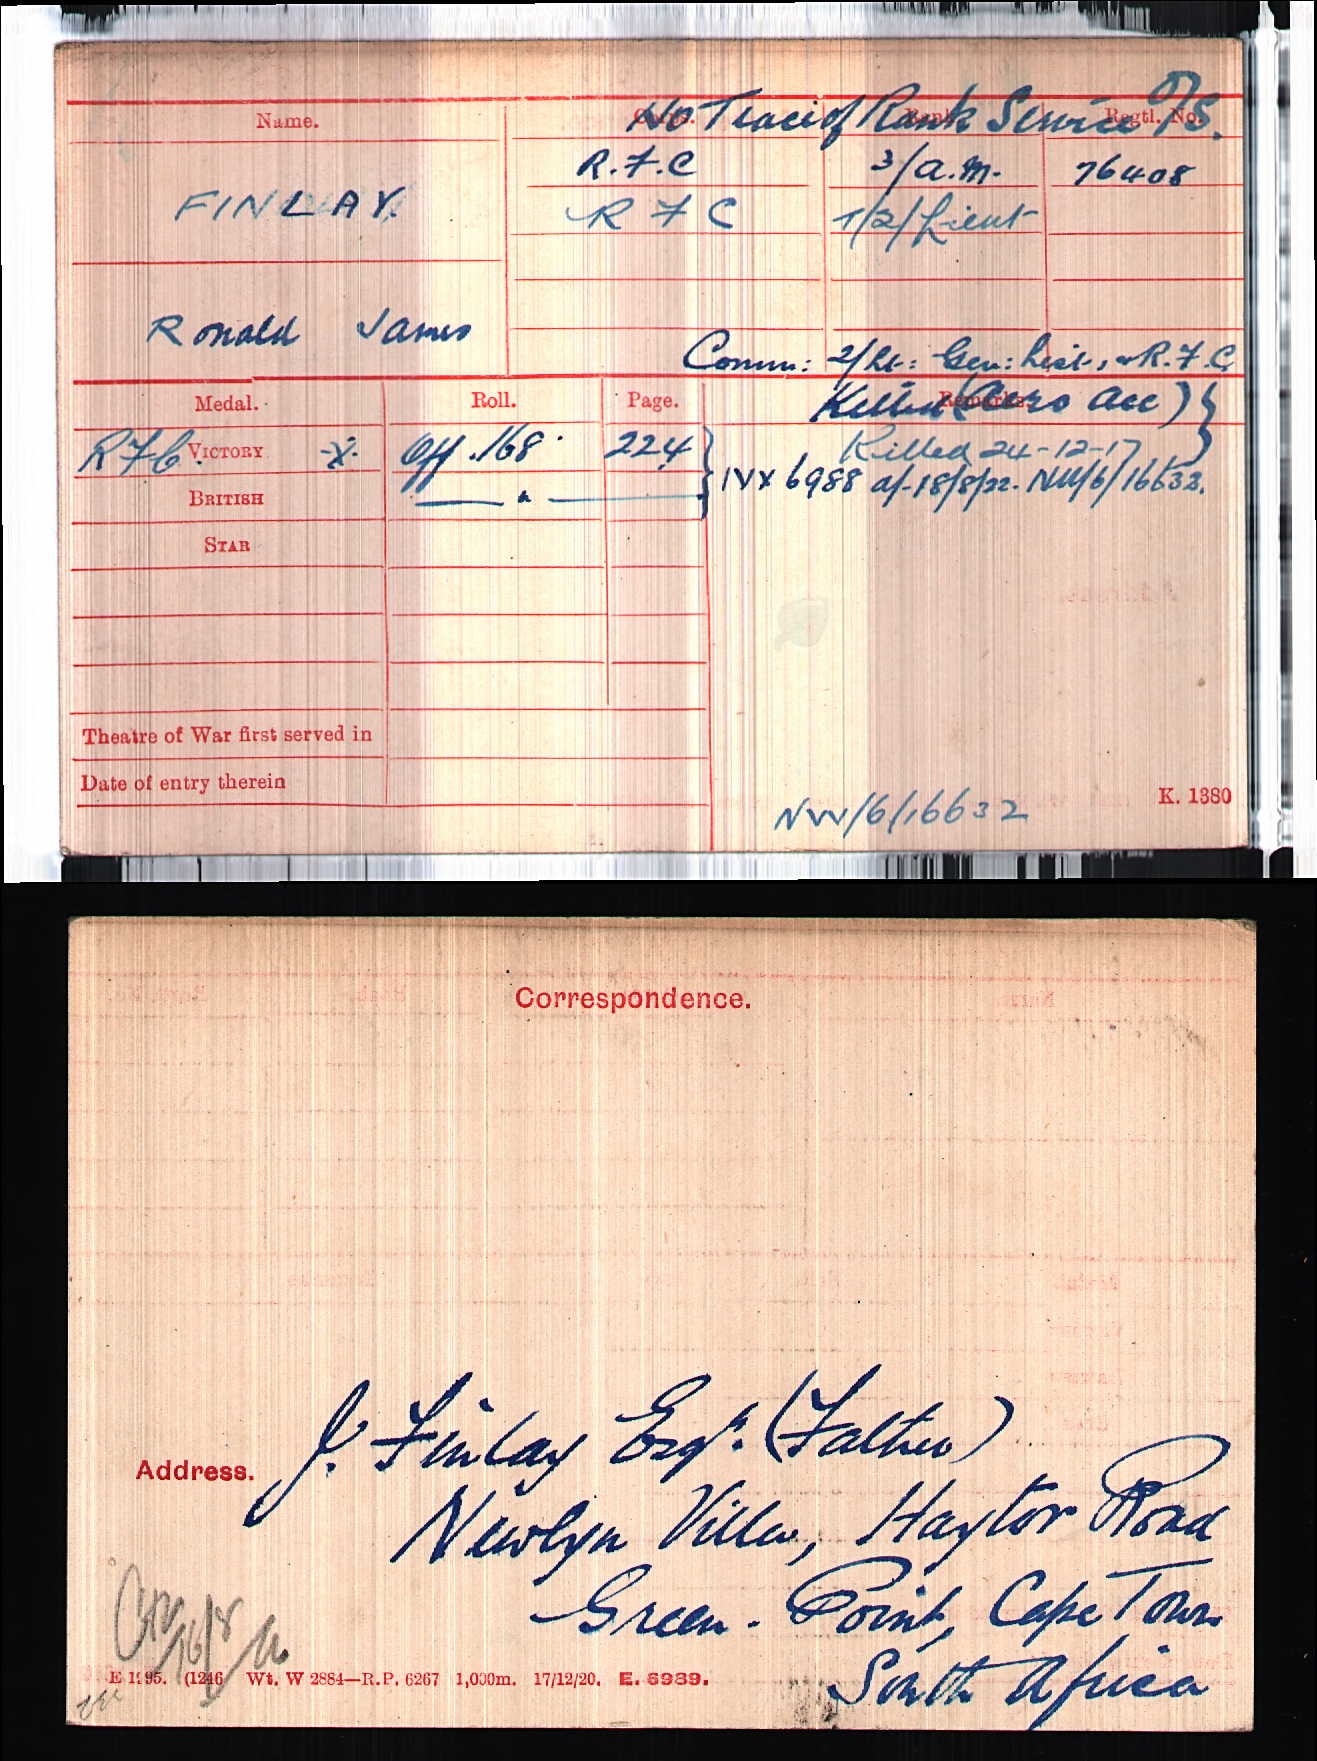 No Trace of Rank Service O/S.
Name. Corps. Rank Regtl. No.
R.F.C 3/A.M. 76408
FINLAY. R F C T/2/Lieut
Ronald James
Comm: 2/Lt: Gen: List, & R.F.C.
Medal. Roll. Page. Remarks.
Killed (Aero Acc)
R F C. VICTORY Off.168 224 Killed 24-12-17
BRITISH " IVX 6988 d/-18/8/22. NW/6/16632.
STAR
Theatre of War first served in
Date of entry therein
K. 1380
NW/6/16632
Correspondence.
Address.
J. Finlay Esqr. (Father)
Newlyn Villa, Haytor Road
Green-Point, Cape Town
South Africa
E 1295. (1246 Wt. W 2884—R.P. 6267 1,000m. 17/12/20. E. 6989.